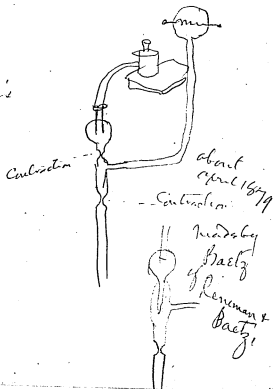 Contraction
about
april 1879
Contraction
made by
Baetz
of Reinman &
Baetz,